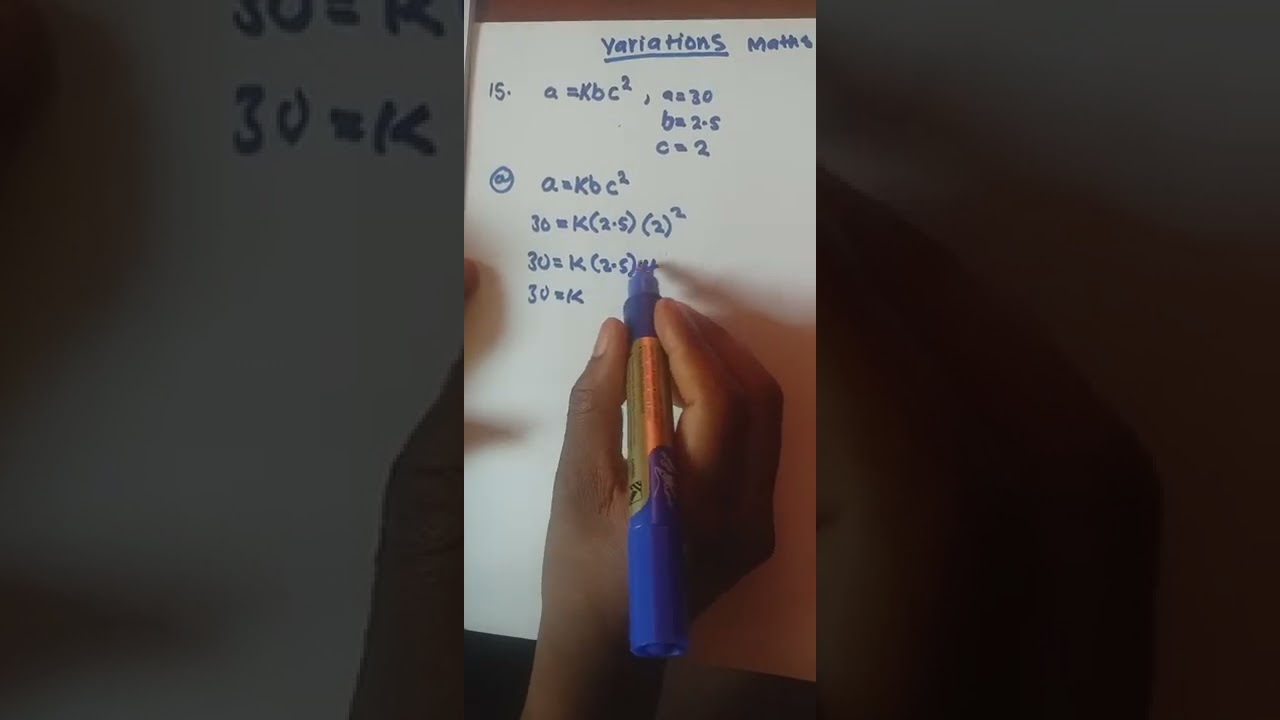 Variations Maths
15. a=Kbc², a=30
b=2.5
c=2
ⓐ a=Kbc²
30=K(2.5)(2)²
30=K(2.5)
30=K
30=K
30=K